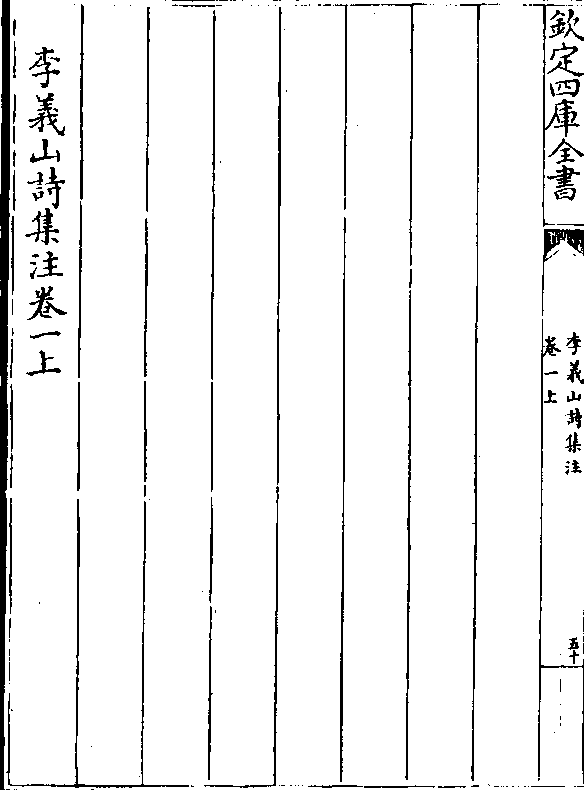 欽定四庫全書
李義山詩集注
卷一上
五十
李義山詩集注卷一上